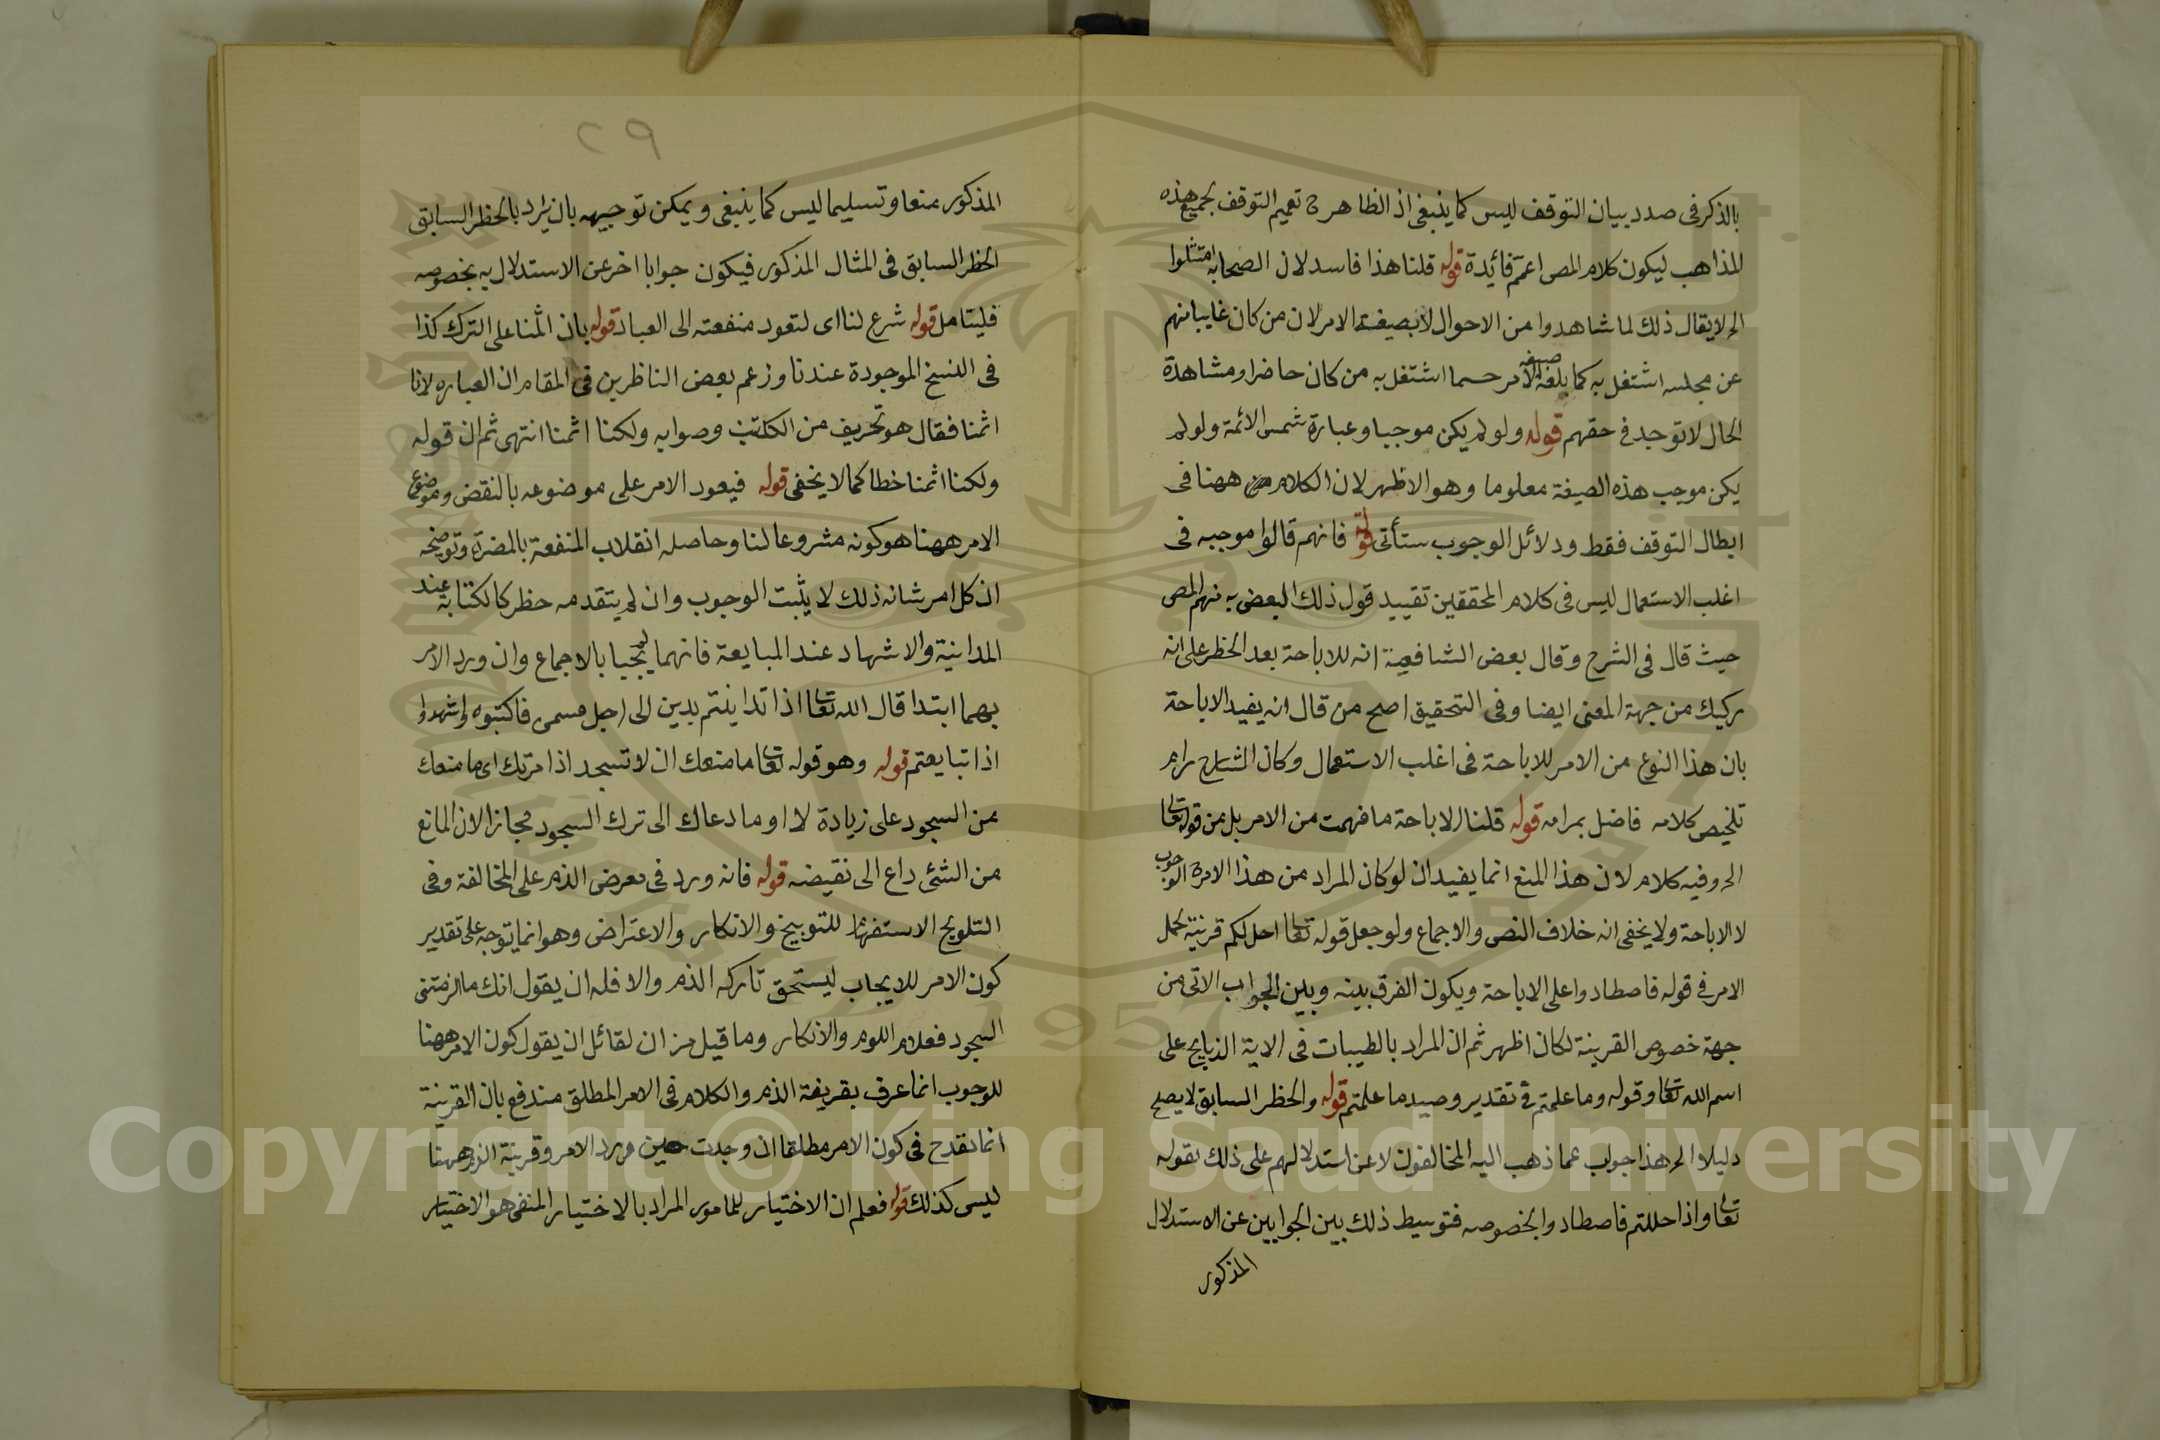 بالذكر فى صدد بيان التوقف ليس كما ينبغى اذ الظاهر ح تعميم التوقف بجميع هذه
المذاهب ليكون كلام المص اعم فائدة قوله قلنا هذا فاسد لان الصحابه امتثلوا
الخ لا يقال ذلك لما شاهدوا من الاحوال لا بصيغة الامر لان من كان غايبا منهم
عن مجلسه اشتغل به كما بلغه صيغة الامر حسما اشتغل به من كان حاضرا ومشاهدة
الحال لا توجد فى حقهم قوله ولو لم يكن موجبا وعبارة شمس الائمة ولو لم
يكن موجب هذه الصيغة معلوما وهو الاظهر لان الكلام ههنا فى
ابطال التوقف فقط ودلائل الوجوب ستأتى قوله فانهم قالوا موجبه فى
اغلب الاستعمال ليس فى كلام المحققين تقييد قول ذلك البعض به نهم المص
حيث قال فى الشرح وقال بعض الشافعية انه للاباحة بعد الحظر على انه
ركيك من جهة المعنى ايضا وفى التحقيق اصح من قال انه يفيد الاباحة
بان هذا النوع من الامر للاباحة فى اغلب الاستعمال وكان الشارح رام
تلخيص كلامه فاضل بمرامه قوله قلنا الاباحة ما فهمت من الامر بل من قوله تعا
الخ وفيه كلام لان هذا المنع انما يفيد ان لو كان المراد من هذا الامر الوجوب
لا الاباحة ولا يخفى انه خلاف النص والاجماع ولو جعل قوله تعا احل لكم قرينة لحمل
الامر فى قوله فاصطادوا على الاباحة ويكون الفرق بينه وبين الجواب الاتى من
جهة خصوص القرينة لكان اظهر ثم ان المراد بالطيبات فى الاية الذبايح على
اسم الله تعا وقوله وما علمتم فى تقدير وصيد ما علمتم قوله والحظر السابق لا يصلح
دليلا الخ هذا جواب عما ذهب اليه المخالفون لا عن استدلالهم على ذلك بقوله
تعا واذا حللتم فاصطادوا لخصوصه فتوسيط ذلك بين الجوابين عن الاستدلال
المذكور
٢٩
المذكور منعا وتسليما ليس كما ينبغى ويمكن توجيهه بان يراد بالحظر السابق
الحظر السابق فى المثال المذكور فيكون جوابا اخر عن الاستدلال به بخصوصه
فليتامل قوله شرع لنا اى لتعود منفعته الى العباد قوله بان اثمنا على الترك كذا
فى النسخ الموجودة عندنا وزعم بعض الناظرين فى المقام ان العباره لانا
اثمنا فقال هو تحريف من الكاتب وصوابه ولكنا اثمنا انتهى ثم ان قوله
ولكنا اثمنا خطا كما لا يخفى قوله فيعود الامر على موضوعه بالنقض وموضوع
الامر ههنا هو كونه مشروعا لنا وحاصله انقلاب المنفعة بالمضرة وتوضيحه
ان كل امر شانه ذلك لا يثبت الوجوب وان لم يتقدمه حظر كالكتابة عند
المداينة والاشهاد عند المبايعة فانهما لم يجبا بالاجماع وان ورد الامر
بهما ابتدا قال الله تعا اذا تداينتم بدين الى اجل مسمى فاكتبوه واشهدوا
اذا تبايعتم قوله وهو قوله تعا ما منعك ان لا تسجد اذ امرتك اى ما منعك
من السجود على زيادة لا او ما دعاك الى ترك السجود مجازا لان المانع
من الشئ داع الى نقيضه قوله فانه ورد فى معرض الذم على المخالفة وفى
التلويح الاستفهام للتوبيخ والانكار والاعتراض وهو انما يتوجه على تقدير
كون الامر للايجاب ليستحق تاركه الذم والا فله ان يقول انك ما الزمتنى
السجود فعلام اللوم والانكار وما قيل من ان لقائل ان يقول كون الامر ههنا
للوجوب انما عرف بقرينة الذم والكلام فى الامر المطلق مندفع بان القرينة
انما تقدح فى كون الامر مطلقا ان وجدت حين ورد الامر وقرينة الذم ههنا
ليس كذلك قوله فعلم ان الاختيار للمامور المراد بالاختيار المنفى هو الاختيار
Copyright © King Saud University
1957